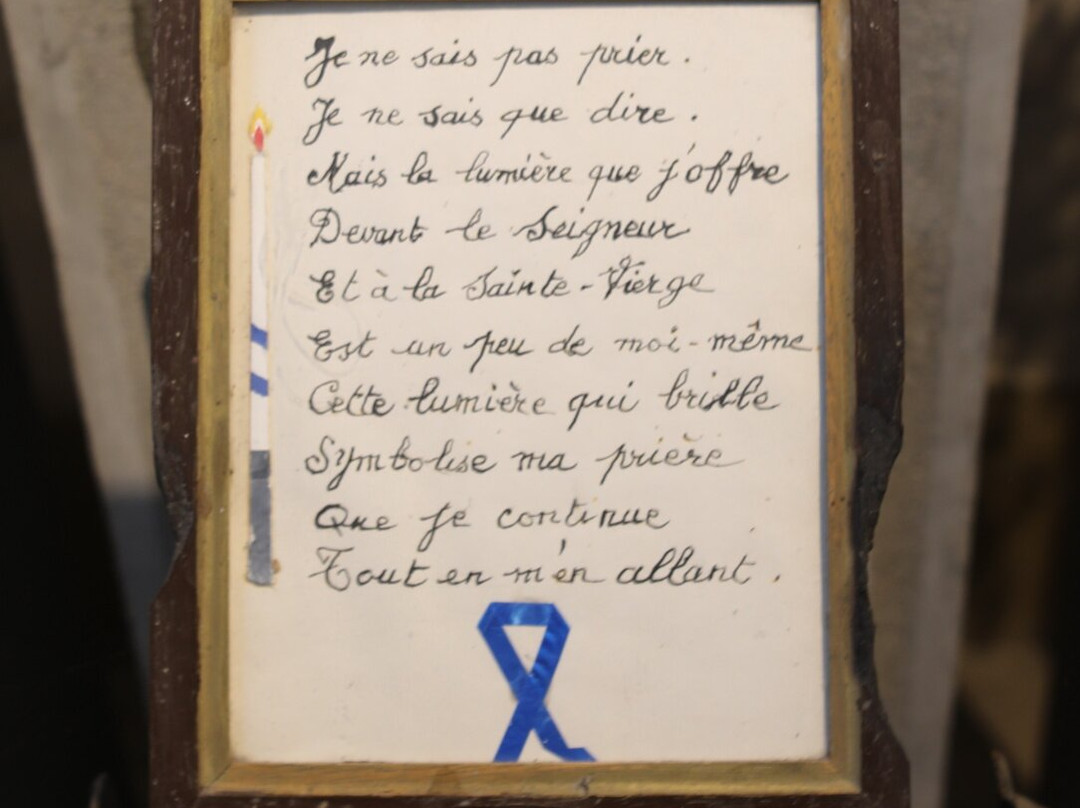 Je ne sais pas prier.
Je ne sais que dire.
Mais la lumière que j'offre
Devant le Seigneur
Et à la Sainte-Vierge
Est un peu de moi-même
Cette lumière qui brille
Symbolise ma prière
Que je continue
Tout en m'en allant.